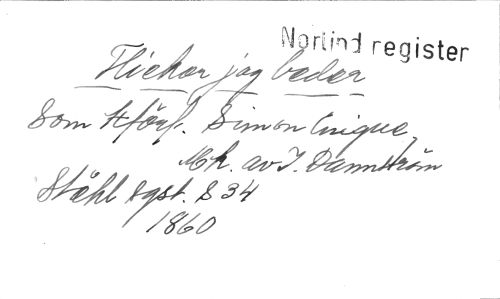 Norlind register
Flickor jag beder
Som Hförf. Simon Enique,
Mh. av I. Dannström
Ståhl sgst. S 34
1860